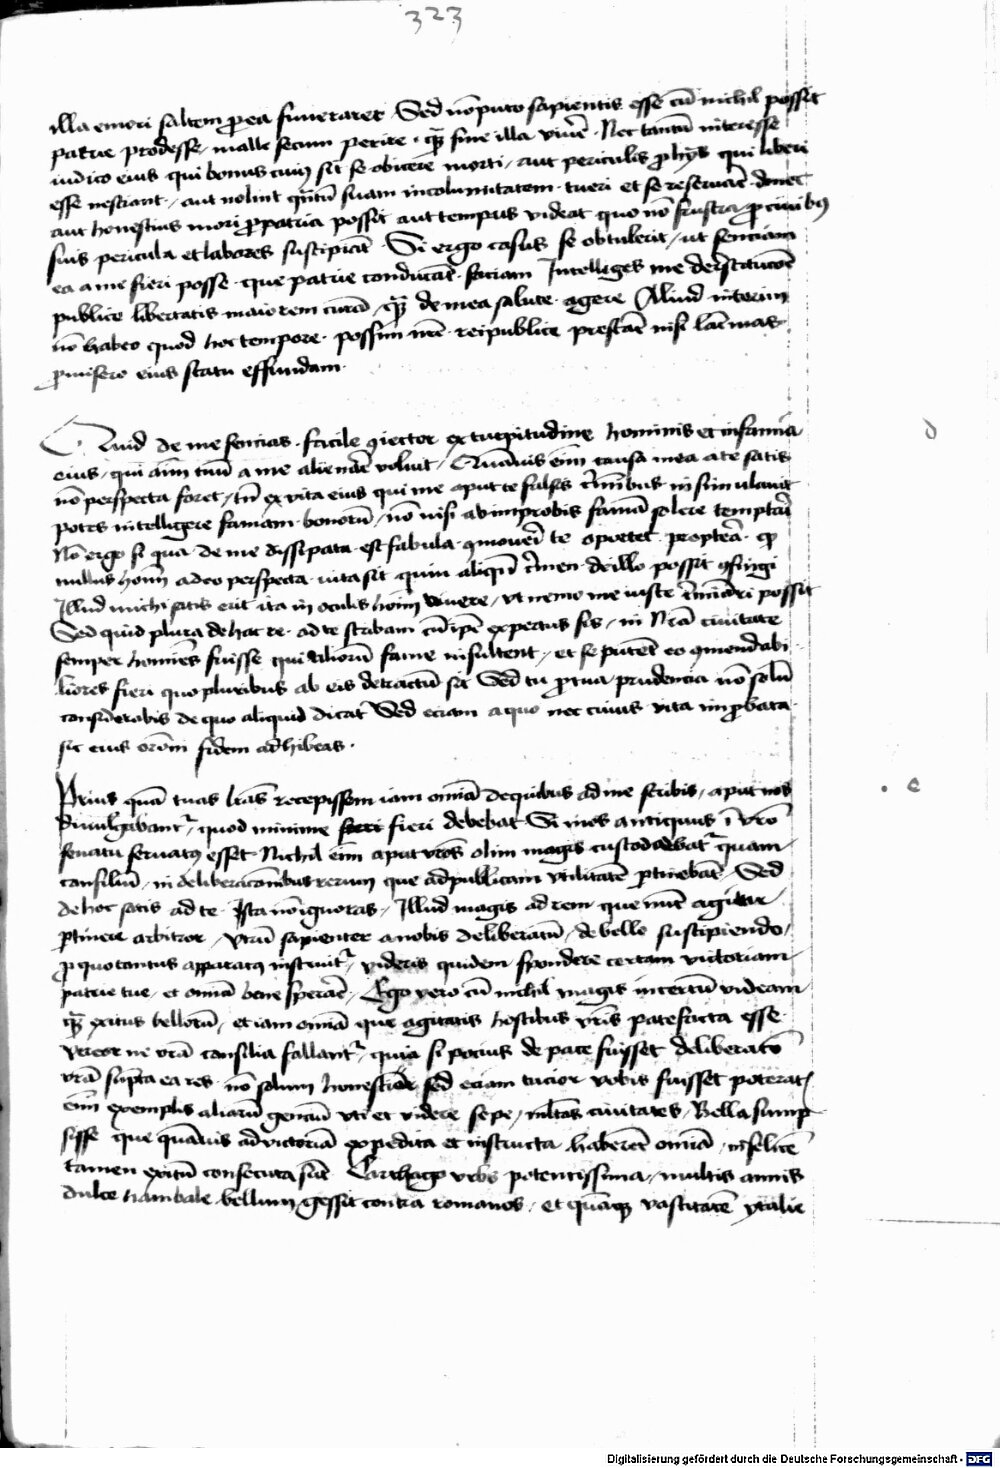 323
illa emori saltem pro ea funeraret Sed nō puto sapientis esse cū nichil possit
patrie prodesse malle secum perire quā sine illa vivē Nec tantū interesse
iudico eius qui bonus civis sit se obicere morti aut periculis pro hys qui liberi
esse nesciant aut nolint quātū suam incolumitatem tueri et se reservare donec
aut honestius mori pro patria possit aut tempus videat quo nō frustra pro civibus
suis pericula et labores suscipiat Si ergo casus se obtulerit ut senciam
ea a me fieri posse que patrie conducāt faciam Intelliges me de
publice libertatis maiorem curā quā de mea salute agere Aliud interim
nō habeo quod hoc tempore possim reipublice prestare nisi lacrimas
pro misero eius statu effundam
Quid de me sencias facile coniector ex turpitudine hominis et infamia
eius qui aīm tuū a me alienare voluit Quāvis eīm causa mea a te satis
nō perspecta foret tn̄ ex vita eius qui me aput te falsis crīminibus insimulavit
potes intelligere famam bonorū nō nisi ab improbis famā solere temptari
Nō ergo si qua de me dissipata est fabula commoveri te oportet propterea quod
nullius homīs adeo perspecta vita sit quin aliquod crīmen de illo possit confingi
Illud michi satis erit ita in oculis homīm vivere ut nemo me iuste crīminari possit
Sed quid plura de hac re ad te scribam cū ipē expertus sis in nrā civitate
semper homīes fuisse qui aliorū fame insultent et se putent eo commendabi
liores fieri quo pluribus ab eis detractū sit Sed tu pro tua prudencia nō solū
considerabis de quo aliquid dicat Sed eciam a quo nec cuius vita improbata
sit eius orōni fidem adhibeas
Prius quā tuas lrās recepissem iam omīa de quibus ad me scribis aput nos
divulgabantur quod minime fieri debebat Si mos antiquus ī vrō
senatu servatus esset Nichil eīm aput vros olim magis custodiebatur quam
consiliū in deliberacōnibus rerum que ad publicam utilitatē pertinebāt Sed
de hoc satis ad te Ista nō ignoras Illud magis ad rem que nūc agitur
pertinere arbitror utrū sapienter a nobis deliberatū de bello suscipiendo
pro quo tantus apparatus instruitur videris quidem spondere certam victoriam
patrie tue et omīa bene sperare Ego vero cū nichil magis incertū videam
quā exitus bellorū et iam omīa que agitatis hostibus vrīs patefacta esse
vereor ne vrā consilia fallantur quia si pocius de pace fuisset deliberatō
vrā sūpta ea res nō solum honestior sed eciam tucior vobis fuisset poteratis
eīm exemplis aliarū gencium uti et videre sepe multas civitates Bella sump
sisse que quāvis ad victoriā expedita et instructa haberēt omīa infelicē
tamen exitū consecuta sūt Carthago urbs potentissima multis annis
duce hanibale bellum gessit contra romanos et quāquam vastitatē ytalie
d
e
Digitalisierung gefördert durch die Deutsche Forschungsgemeinschaft - DFG